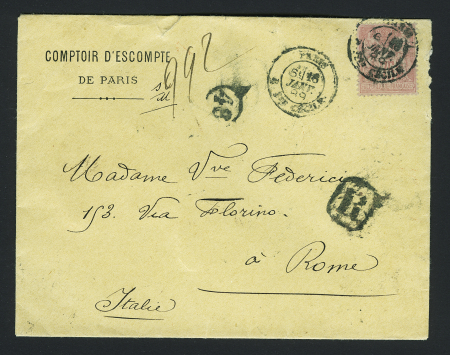 COMPTOIR D'ESCOMPTE
DE PARIS
992
48
PARIS
JANV
R
Madame Vve Federici
153. Via Florino.
à Rome
Italie